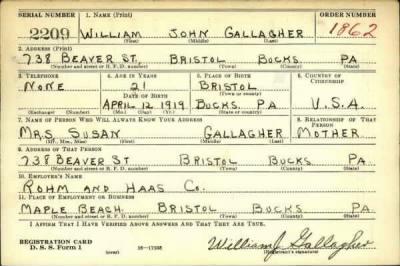 SERIAL NUMBER 1. NAME (Print) ORDER NUMBER
2209 WILLIAM JOHN GALLAGHER 1862
(First) (Middle) (Last)
2. ADDRESS (Print)
738 BEAVER ST. BRISTOL BUCKS PA
(Number and street or R. F. D. number) (Town) (County) (State)
3. TELEPHONE 4. AGE IN YEARS 5. PLACE OF BIRTH 6. COUNTRY OF CITIZENSHIP
NONE 21 BRISTOL
DATE OF BIRTH (Town or county)
APRIL 12 1919 BUCKS. PA U.S.A.
(Exchange) (Number) (Mo.) (Day) (Yr.) (State or country)
7. NAME OF PERSON WHO WILL ALWAYS KNOW YOUR ADDRESS 8. RELATIONSHIP OF THAT PERSON
MRS SUSAN GALLAGHER MOTHER
(Mr., Mrs., Miss) (First) (Middle) (Last)
9. ADDRESS OF THAT PERSON
738 BEAVER ST BRISTOL BUCKS PA
(Number and street or R. F. D. number) (Town) (County) (State)
10. EMPLOYER'S NAME
ROHM AND HAAS CO.
11. PLACE OF EMPLOYMENT OR BUSINESS
MAPLE BEACH. BRISTOL BUCKS PA
(Number and street or R. F. D. number) (Town) (County) (State)
I AFFIRM THAT I HAVE VERIFIED ABOVE ANSWERS AND THAT THEY ARE TRUE.
REGISTRATION CARD
D. S. S. Form 1 (over) 16—17105 William J Gallagher
(Registrant's signature)